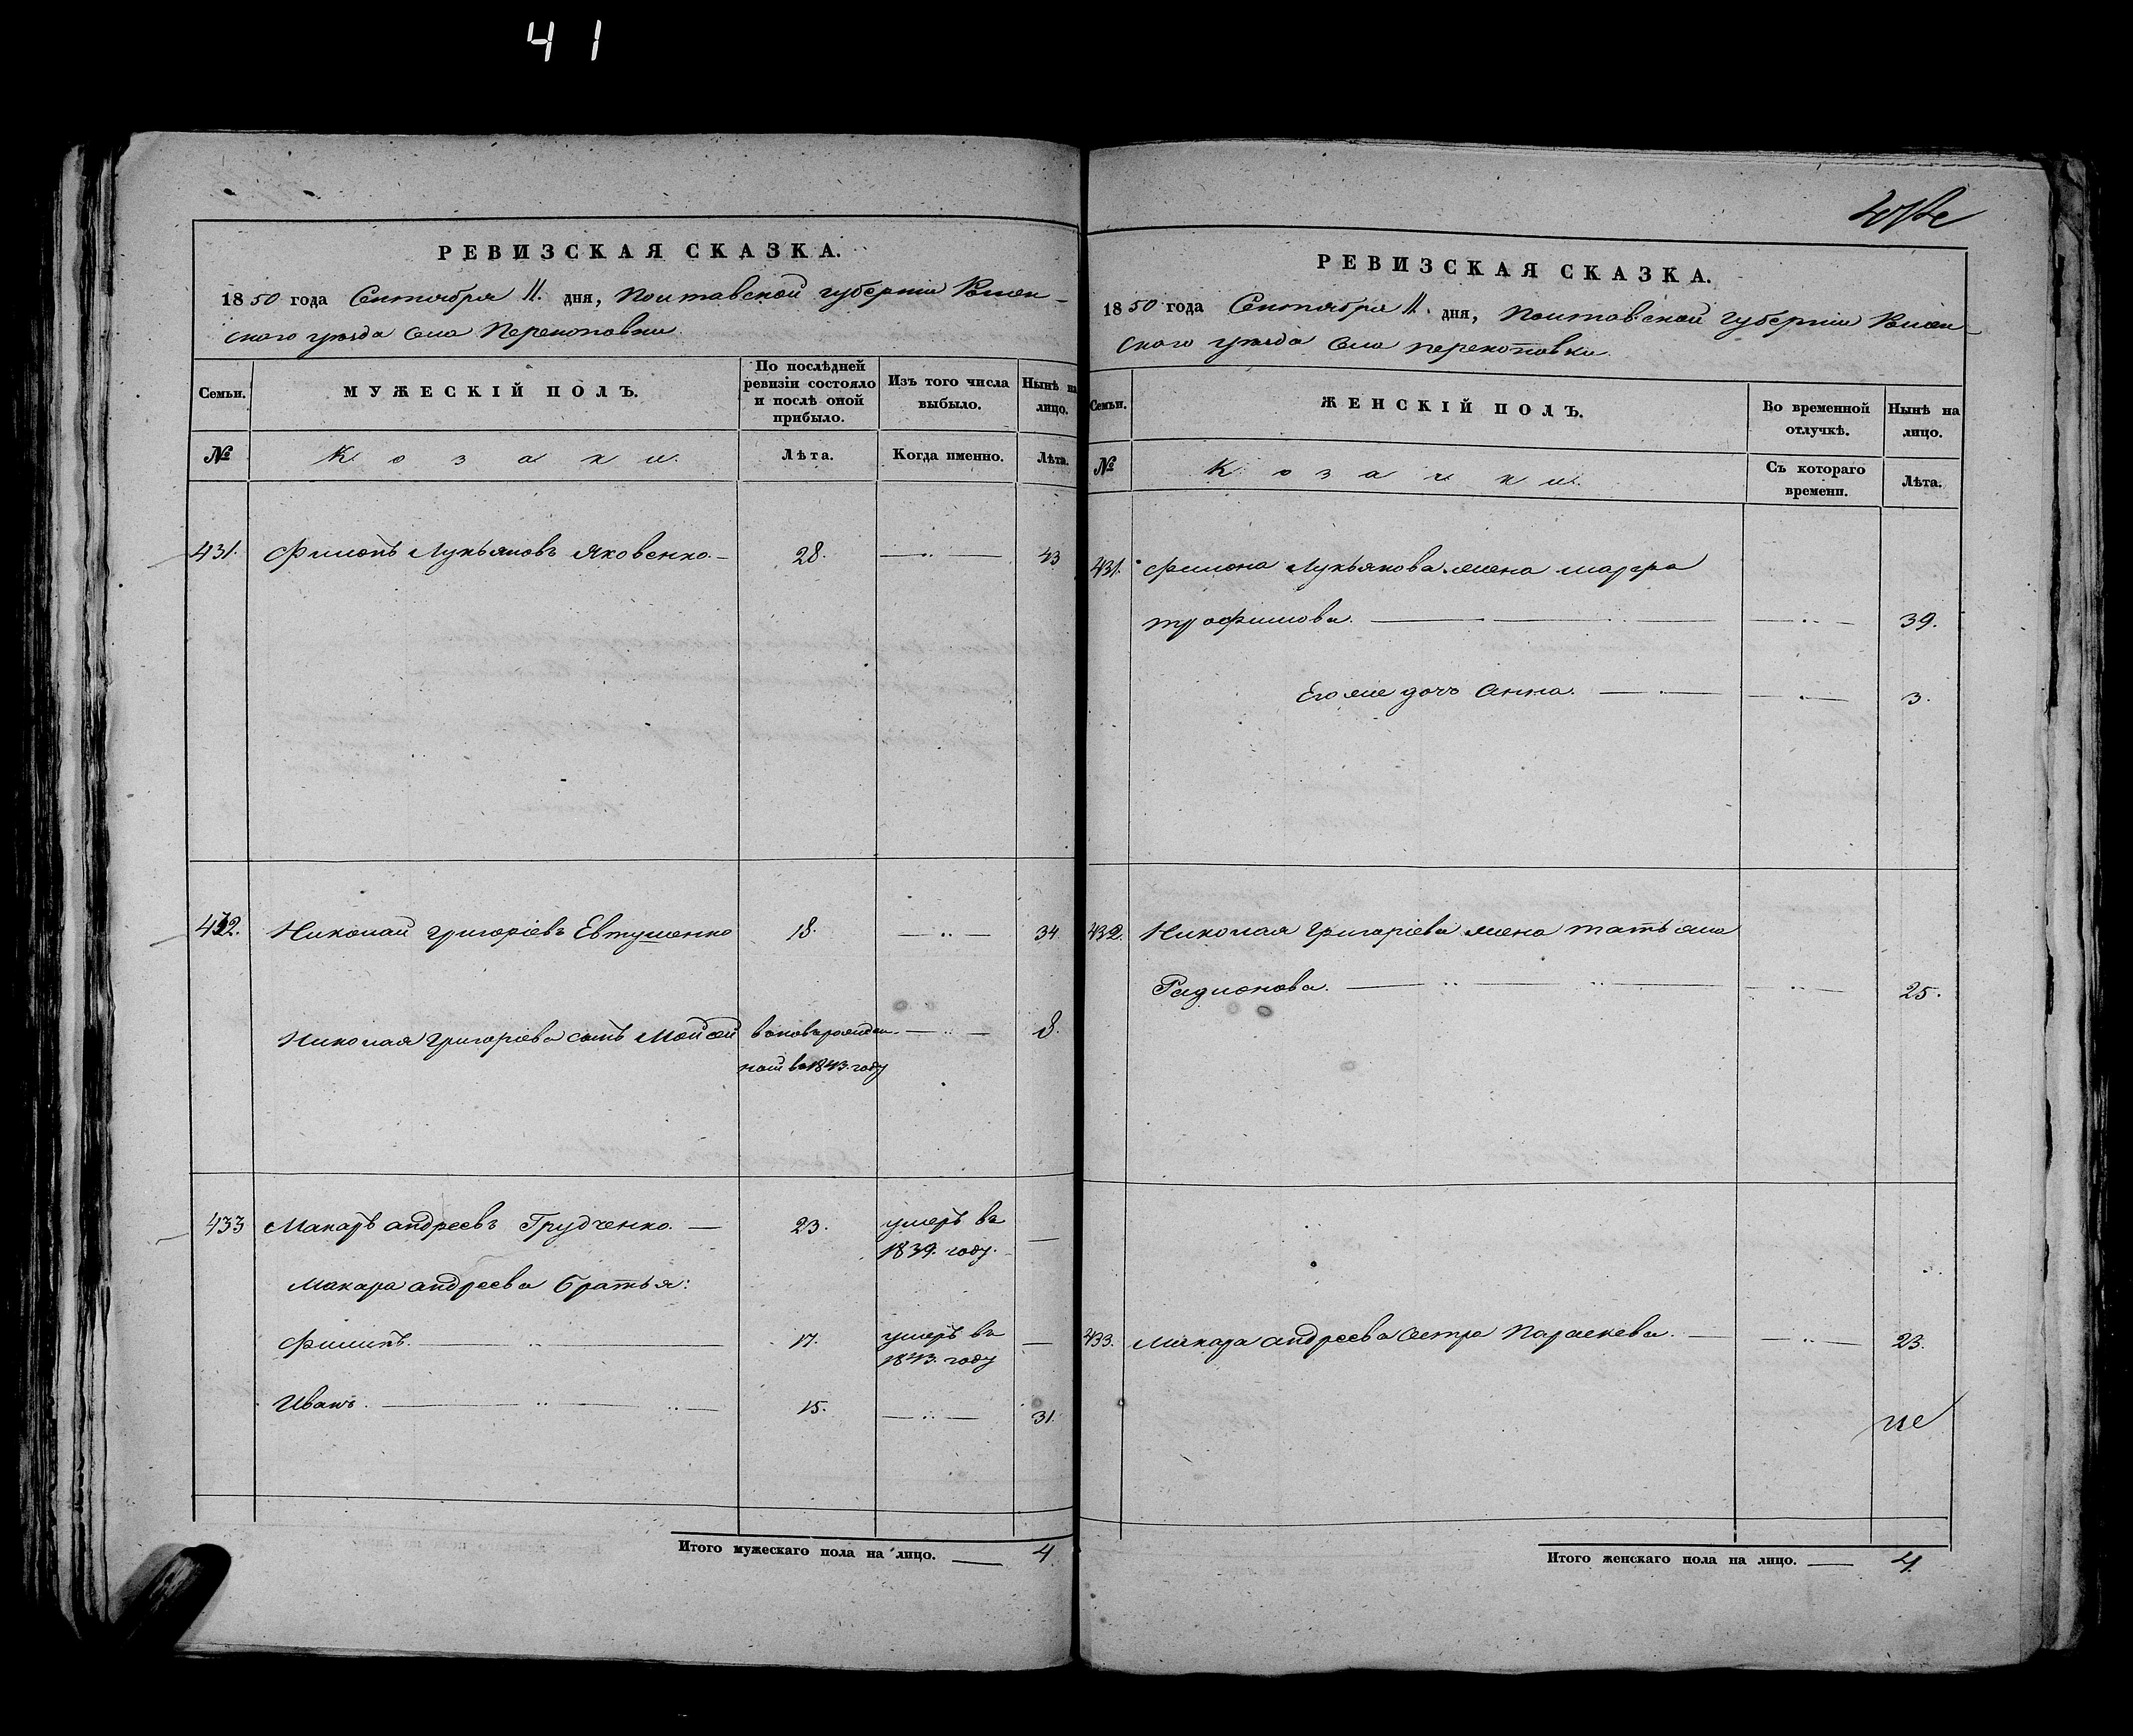 41
РЕВИЗСКАЯ СКАЗКА.
1850 года Сентября 11. дня, Полтавской губернии Ромен-
ского уезда села Перекоповки
Семьи.
МУЖЕСКІЙ ПОЛЪ.
По послѣдней ревизіи состояло и послѣ оной прибыло.
Изъ того числа выбыло.
Нынѣ на лицо.
№
Козаки.
Лѣта.
Когда именно.
Лѣта.
431. Филонъ Лукьяновъ Яковенко. 28. 43
432. Николай Григоріевъ Евтушенко 18. 34
Николая Григоріева сынъ Мойсей вновьрожден- 8.
ной въ 1843. году
433 Макаръ Андреевъ Грудченко. 23. умеръ въ
1839. году.
Макара Андреева братья:
Филипъ. 17. умеръ въ
1843. году
Иванъ. 15. 31.
Итого мужескаго пола на лицо. 4.
РЕВИЗСКАЯ СКАЗКА.
1850 года Сентября 11. дня, Полтавской Губерніи Ромен-
ского уезда села Перекоповки.
Семьи.
ЖЕНСКІЙ ПОЛЪ.
Во временной отлучкѣ.
Нынѣ на лицо.
№
Козачки.
Съ котораго времени.
Лѣта.
431. Филона Лукьянова жена Марфа
Трофимова. 39.
Его же дочь Анна. 3.
432. Николая Григоріева жена Татьяна
Радионова. 25.
433. Макара Андреева сестра Параскева. 23.
Итого женскаго пола на лицо. 4.